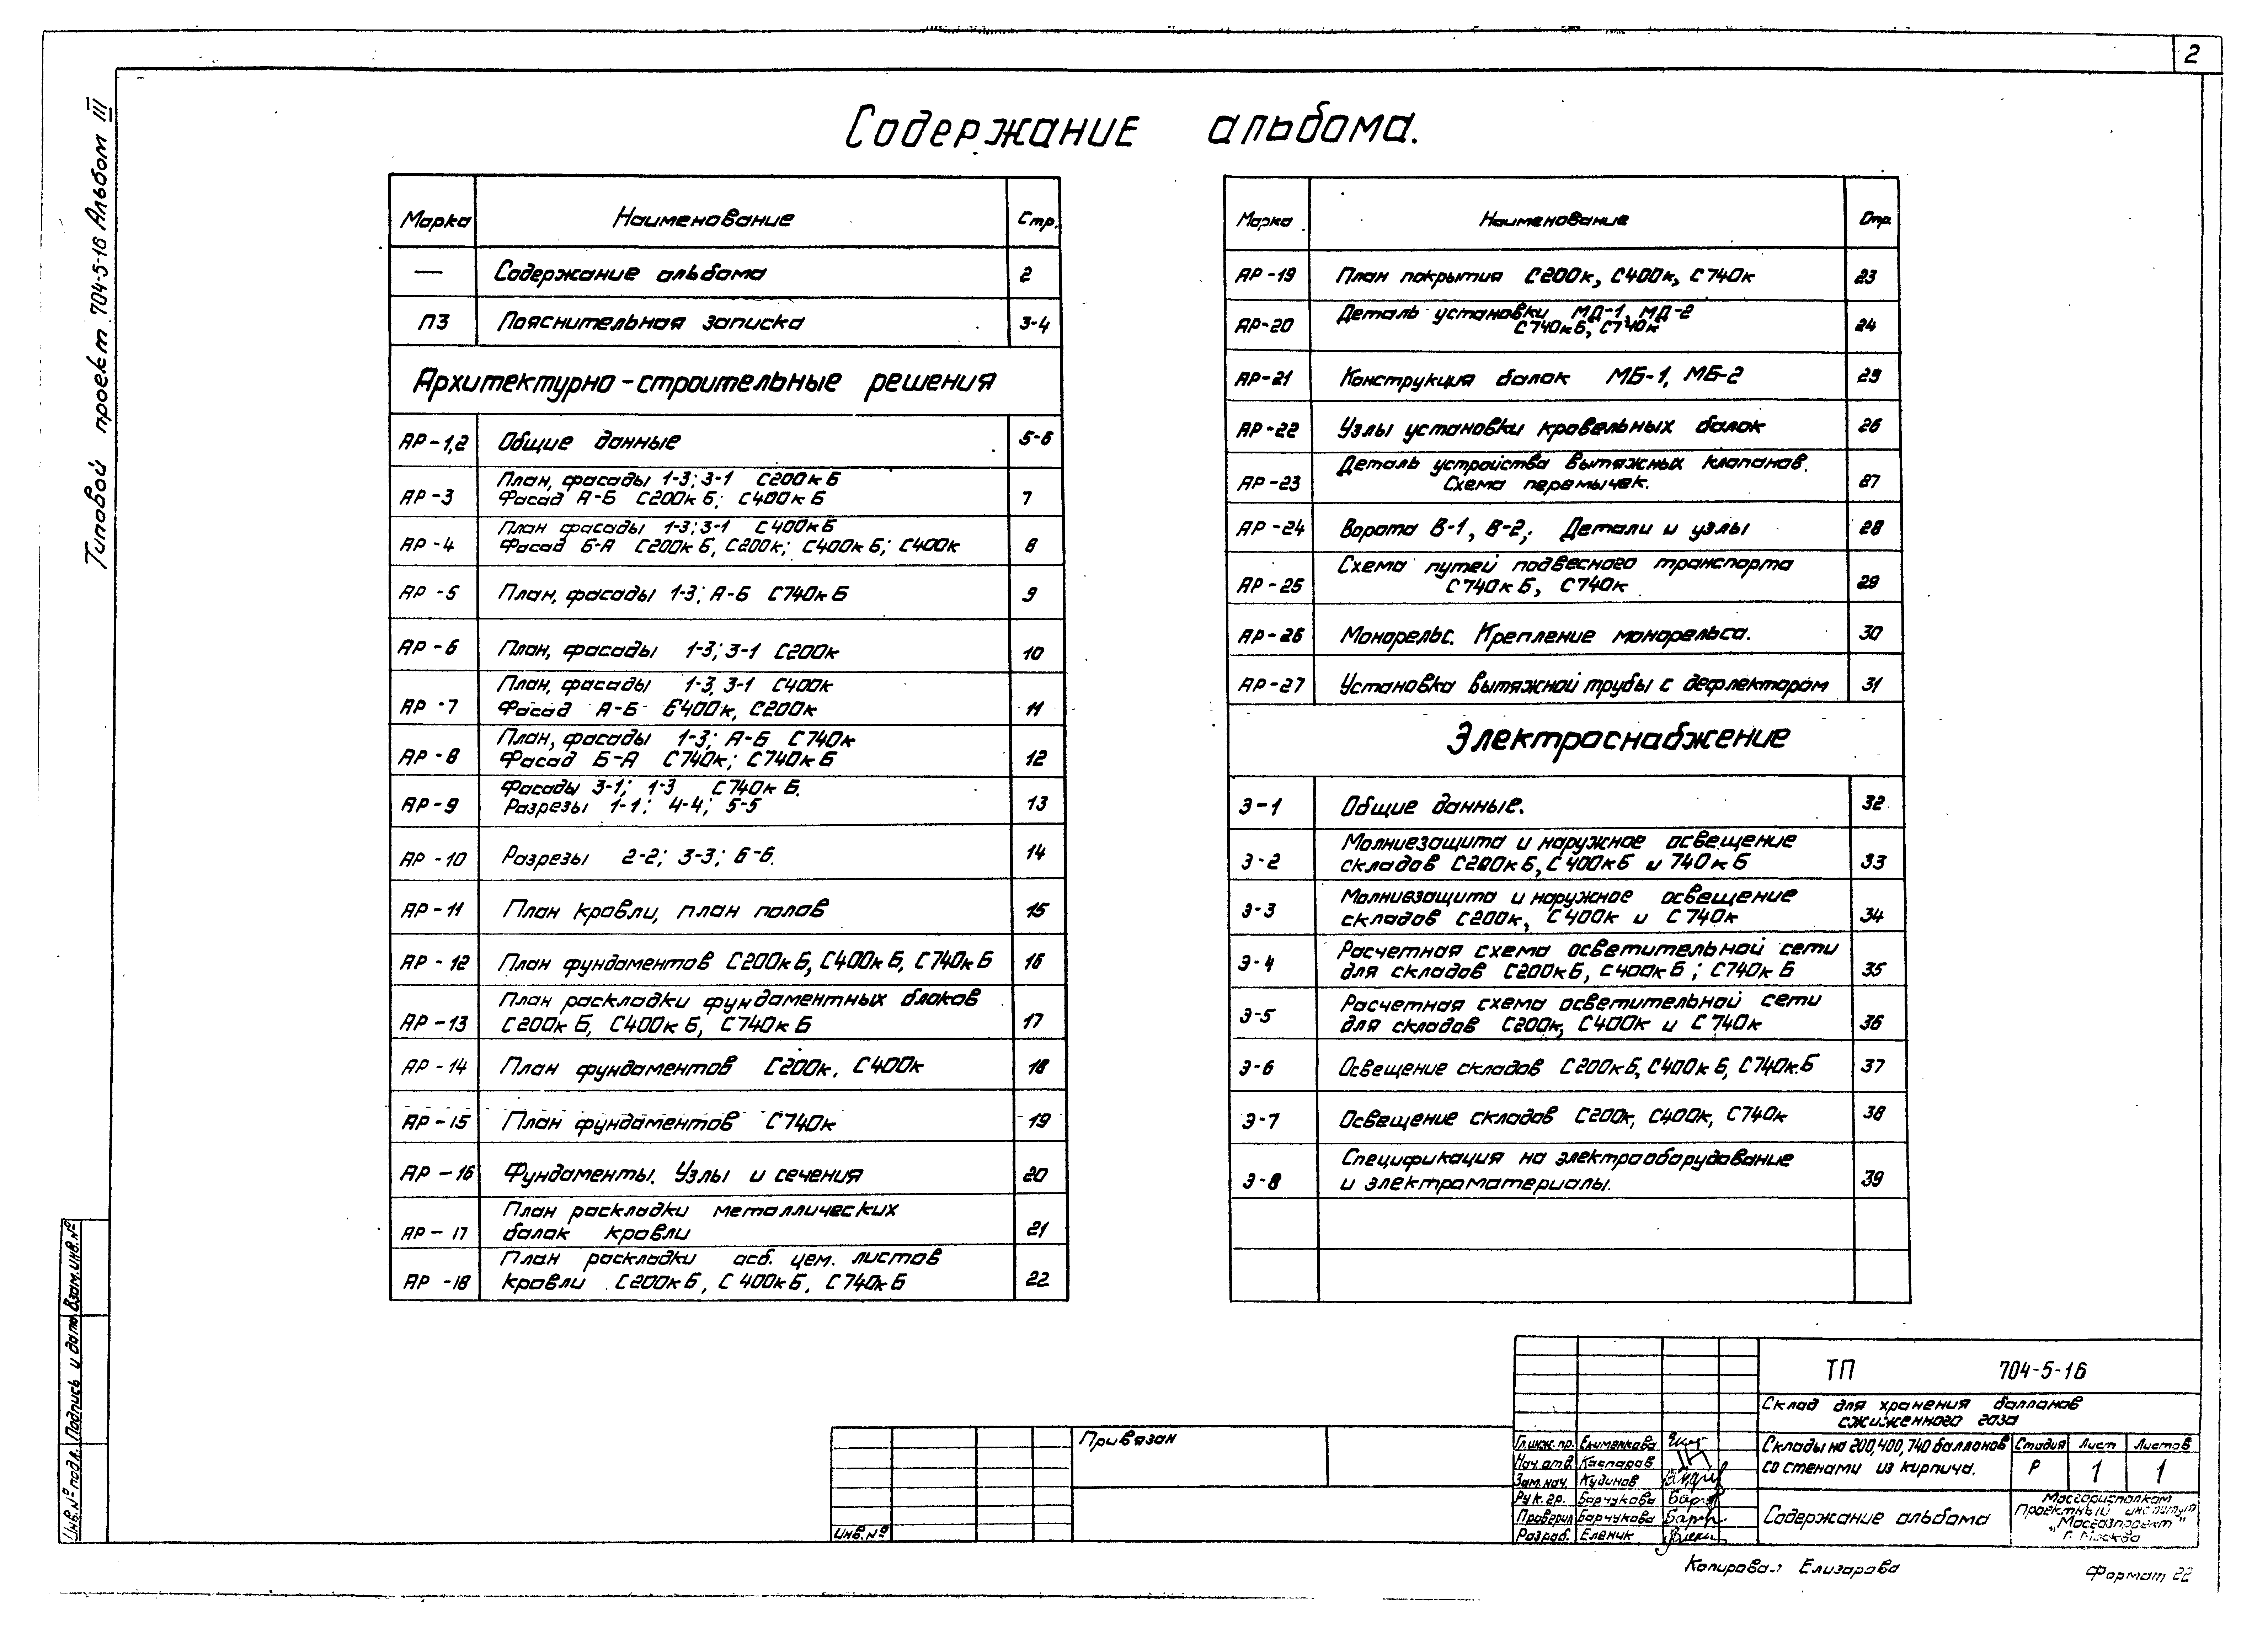 2
Типовой проект 704-5-16 Альбом III
Содержание альбома.
Марка Наименование Стр.
— Содержание альбома 2
ПЗ Пояснительная записка 3-4
Архитектурно-строительные решения
АР-1,2 Общие данные 5-6
План, фасады 1-3; 3-1 С200кБ
АР-3 Фасад А-Б С200кБ; С400кБ 7
План фасады 1-3; 3-1 С400кБ
АР-4 Фасад Б-А С200кБ, С200к; С400кБ; С400к 8
АР-5 План, фасады 1-3; А-Б С740кБ 9
АР-6 План, фасады 1-3; 3-1 С200к 10
План, фасады 1-3, 3-1 С400к
АР-7 Фасад А-Б С400к, С200к 11
План, фасады 1-3; А-Б С740к
АР-8 Фасад Б-А С740к; С740кБ 12
Фасады 3-1; 1-3 С740кБ.
АР-9 Разрезы 1-1; 4-4; 5-5 13
АР-10 Разрезы 2-2; 3-3; 6-6. 14
АР-11 План кровли, план полов 15
АР-12 План фундаментов С200кБ, С400кБ, С740кБ 16
План раскладки фундаментных блоков
АР-13 С200кБ, С400кБ, С740кБ 17
АР-14 План фундаментов С200к, С400к 18
АР-15 План фундаментов С740к 19
АР-16 Фундаменты. Узлы и сечения 20
План раскладки металлических
АР-17 балок кровли 21
План раскладки асб. цем. листов
АР-18 кровли С200кБ, С400кБ, С740кБ 22
Марка Наименование Стр.
АР-19 План покрытия С200к, С400к, С740к 23
Деталь установки МД-1, МД-2
АР-20 С740кБ, С740к 24
АР-21 Конструкция балок МБ-1, МБ-2 25
АР-22 Узлы установки кровельных балок 26
Деталь устройства вытяжных клапанов.
АР-23 Схема перемычек. 27
АР-24 Ворота В-1, В-2; Детали и узлы 28
Схема путей подвесного транспорта
АР-25 С740кБ, С740к 29
АР-26 Монорельс. Крепление монорельса. 30
АР-27 Установка вытяжной трубы с дефлектором 31
Электроснабжение
Э-1 Общие данные. 32
Молниезащита и наружное освещение
Э-2 складов С200кБ, С400кБ и 740кБ 33
Молниезащита и наружное освещение
Э-3 складов С200к, С400к и С740к 34
Расчетная схема осветительной сети
Э-4 для складов С200кБ, С400кБ; С740кБ 35
Расчетная схема осветительной сети
Э-5 для складов С200к, С400к и С740к 36
Э-6 Освещение складов С200кБ, С400кБ, С740кБ 37
Э-7 Освещение складов С200к, С400к, С740к 38
Спецификация на электрооборудование
Э-8 и электроматериалы. 39
Инв.№ подл. Подпись и дата Взам.инв.№
Привязан
Инв.№
ТП 704-5-16
Склад для хранения баллонов
сжиженного газа
Гл.инж.пр. Екименкова
Нач.отд. Каспаров
Зам.нач. Кудинов
Рук.гр. Барчукова
Проверил Барчукова
Разраб. Еленик
Склады на 200, 400, 740 баллонов
со стенами из кирпича.
Стадия Лист Листов
Р 1 1
Содержание альбома
Мосгорисполком
Проектный институт
"Мосгазпроект"
г. Москва
Копировал Елизарова
Формат 22